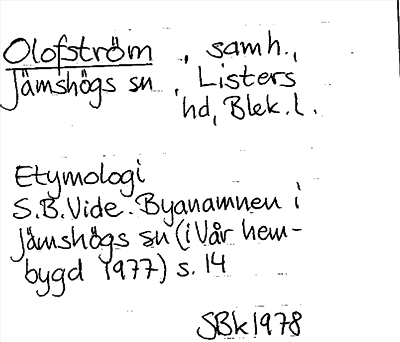 Olofström, samh.,
Jämshögs sn, Listers
hd, Blek. l.
Etymologi
S.B. Vide. Byanamnen i
Jämshögs sn (i Vår hem-
bygd 1977) s. 14
SBk 1978